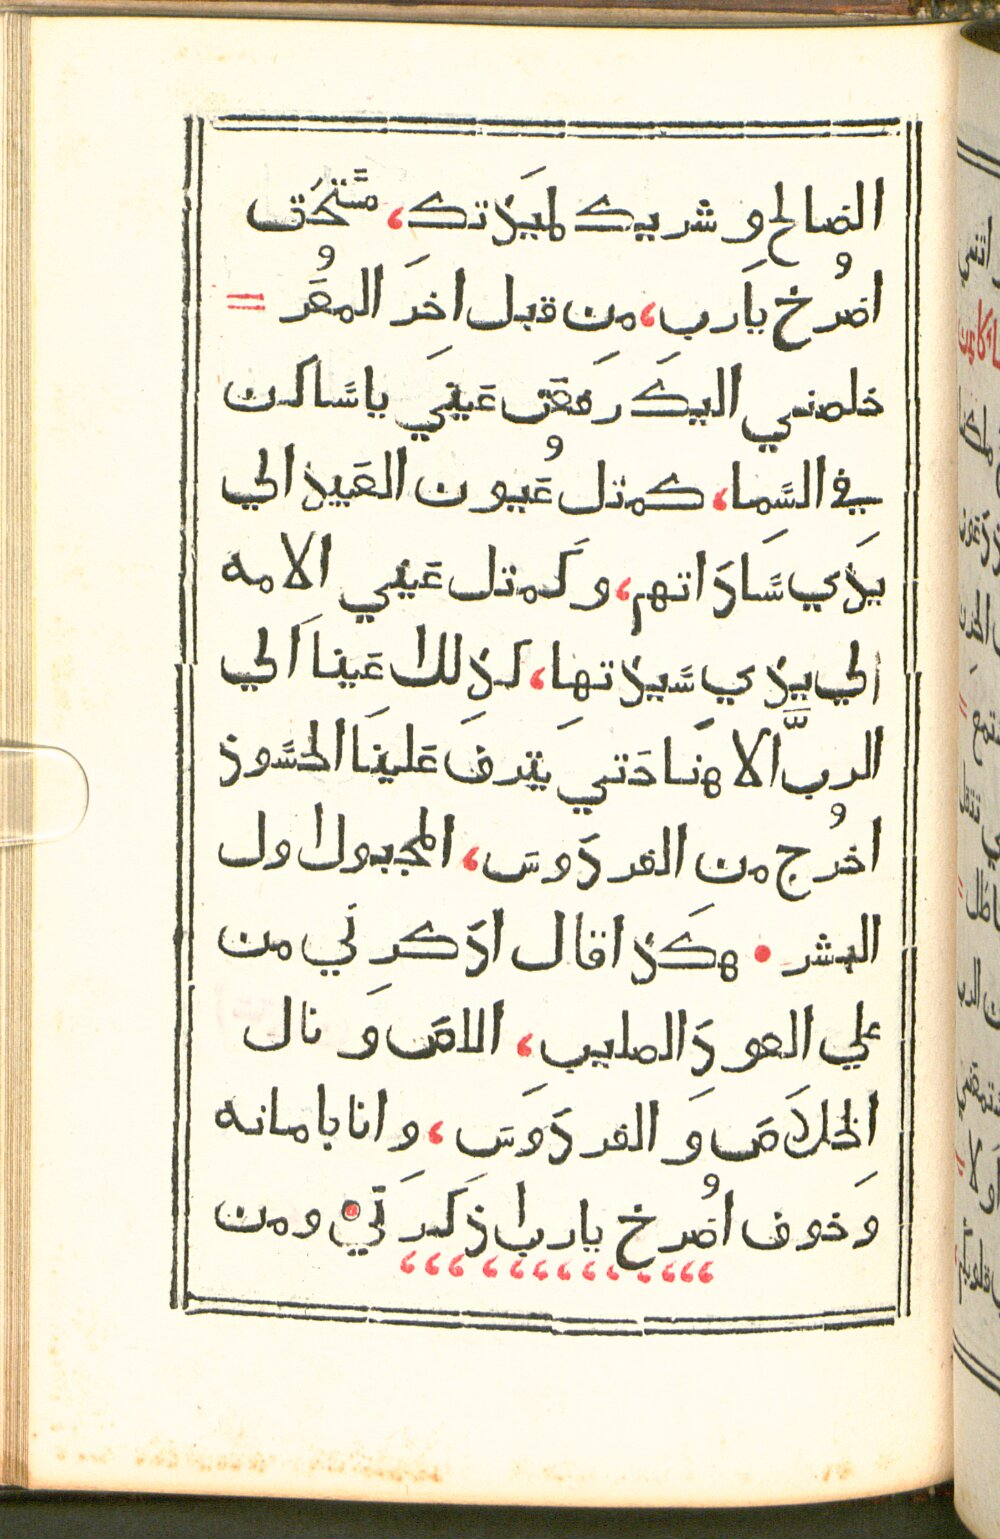 الصالح وشريك لميلادتك، مستحق
اصرخ يارب، من قبل اخر المقر =
خلصني اليك رفعت عيني ياساكن
في السما، كمتل عيون العبيد الي
يدي ساداتهم، وكمتل عيني الامه
الي يدي سيدتها، كذلك عينا الي
الرب الاهنا حتي يترف علينا الحسود
اخرج من الفردوس، المجبول اول
البشر • هكذا قال اذكرني من
علي العود الصليب، اللص ونال
الخلاص والفردوس، وانا بامانه
وخوف اصرخ يارب اذكرني • ومن